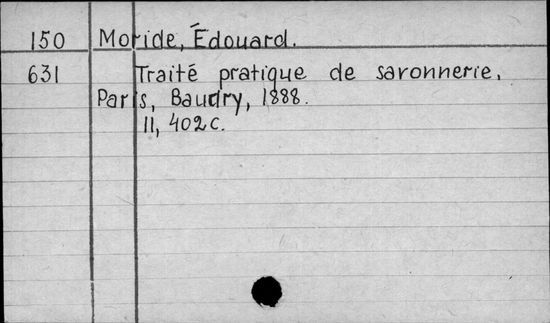 150 Moride, Édouard.
631 Traité pratique de savonnerie.
Paris, Baudry, 1888.
II, 402 c.